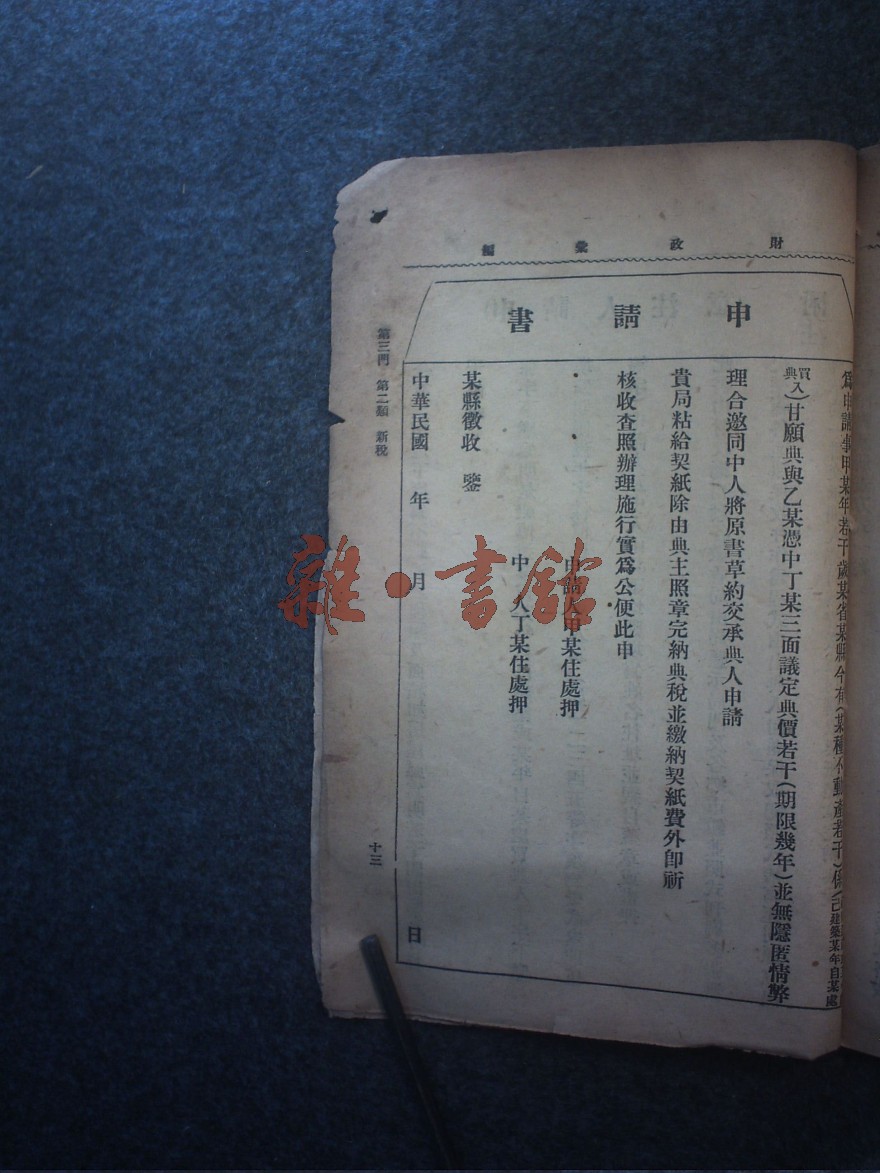 財政彙編
申請書
為申請事甲某年若干歲某省某縣今有(某種不動產若干)係(己建築某年自某處
買典入)甘願典與乙某憑中丁某三面議定典價若干(期限幾年)並無隱匿情弊
理合邀同中人將原書草約交承典人申請
貴局粘給契紙除由典主照章完納典稅並繳納契紙費外卽祈
核收查照辦理施行實為公便此申
申請人甲某住處押
中 人丁某住處押
某縣徵收 鑒
中華民國 年 月 日
第三門 第二類 新稅
十三
雜·書館